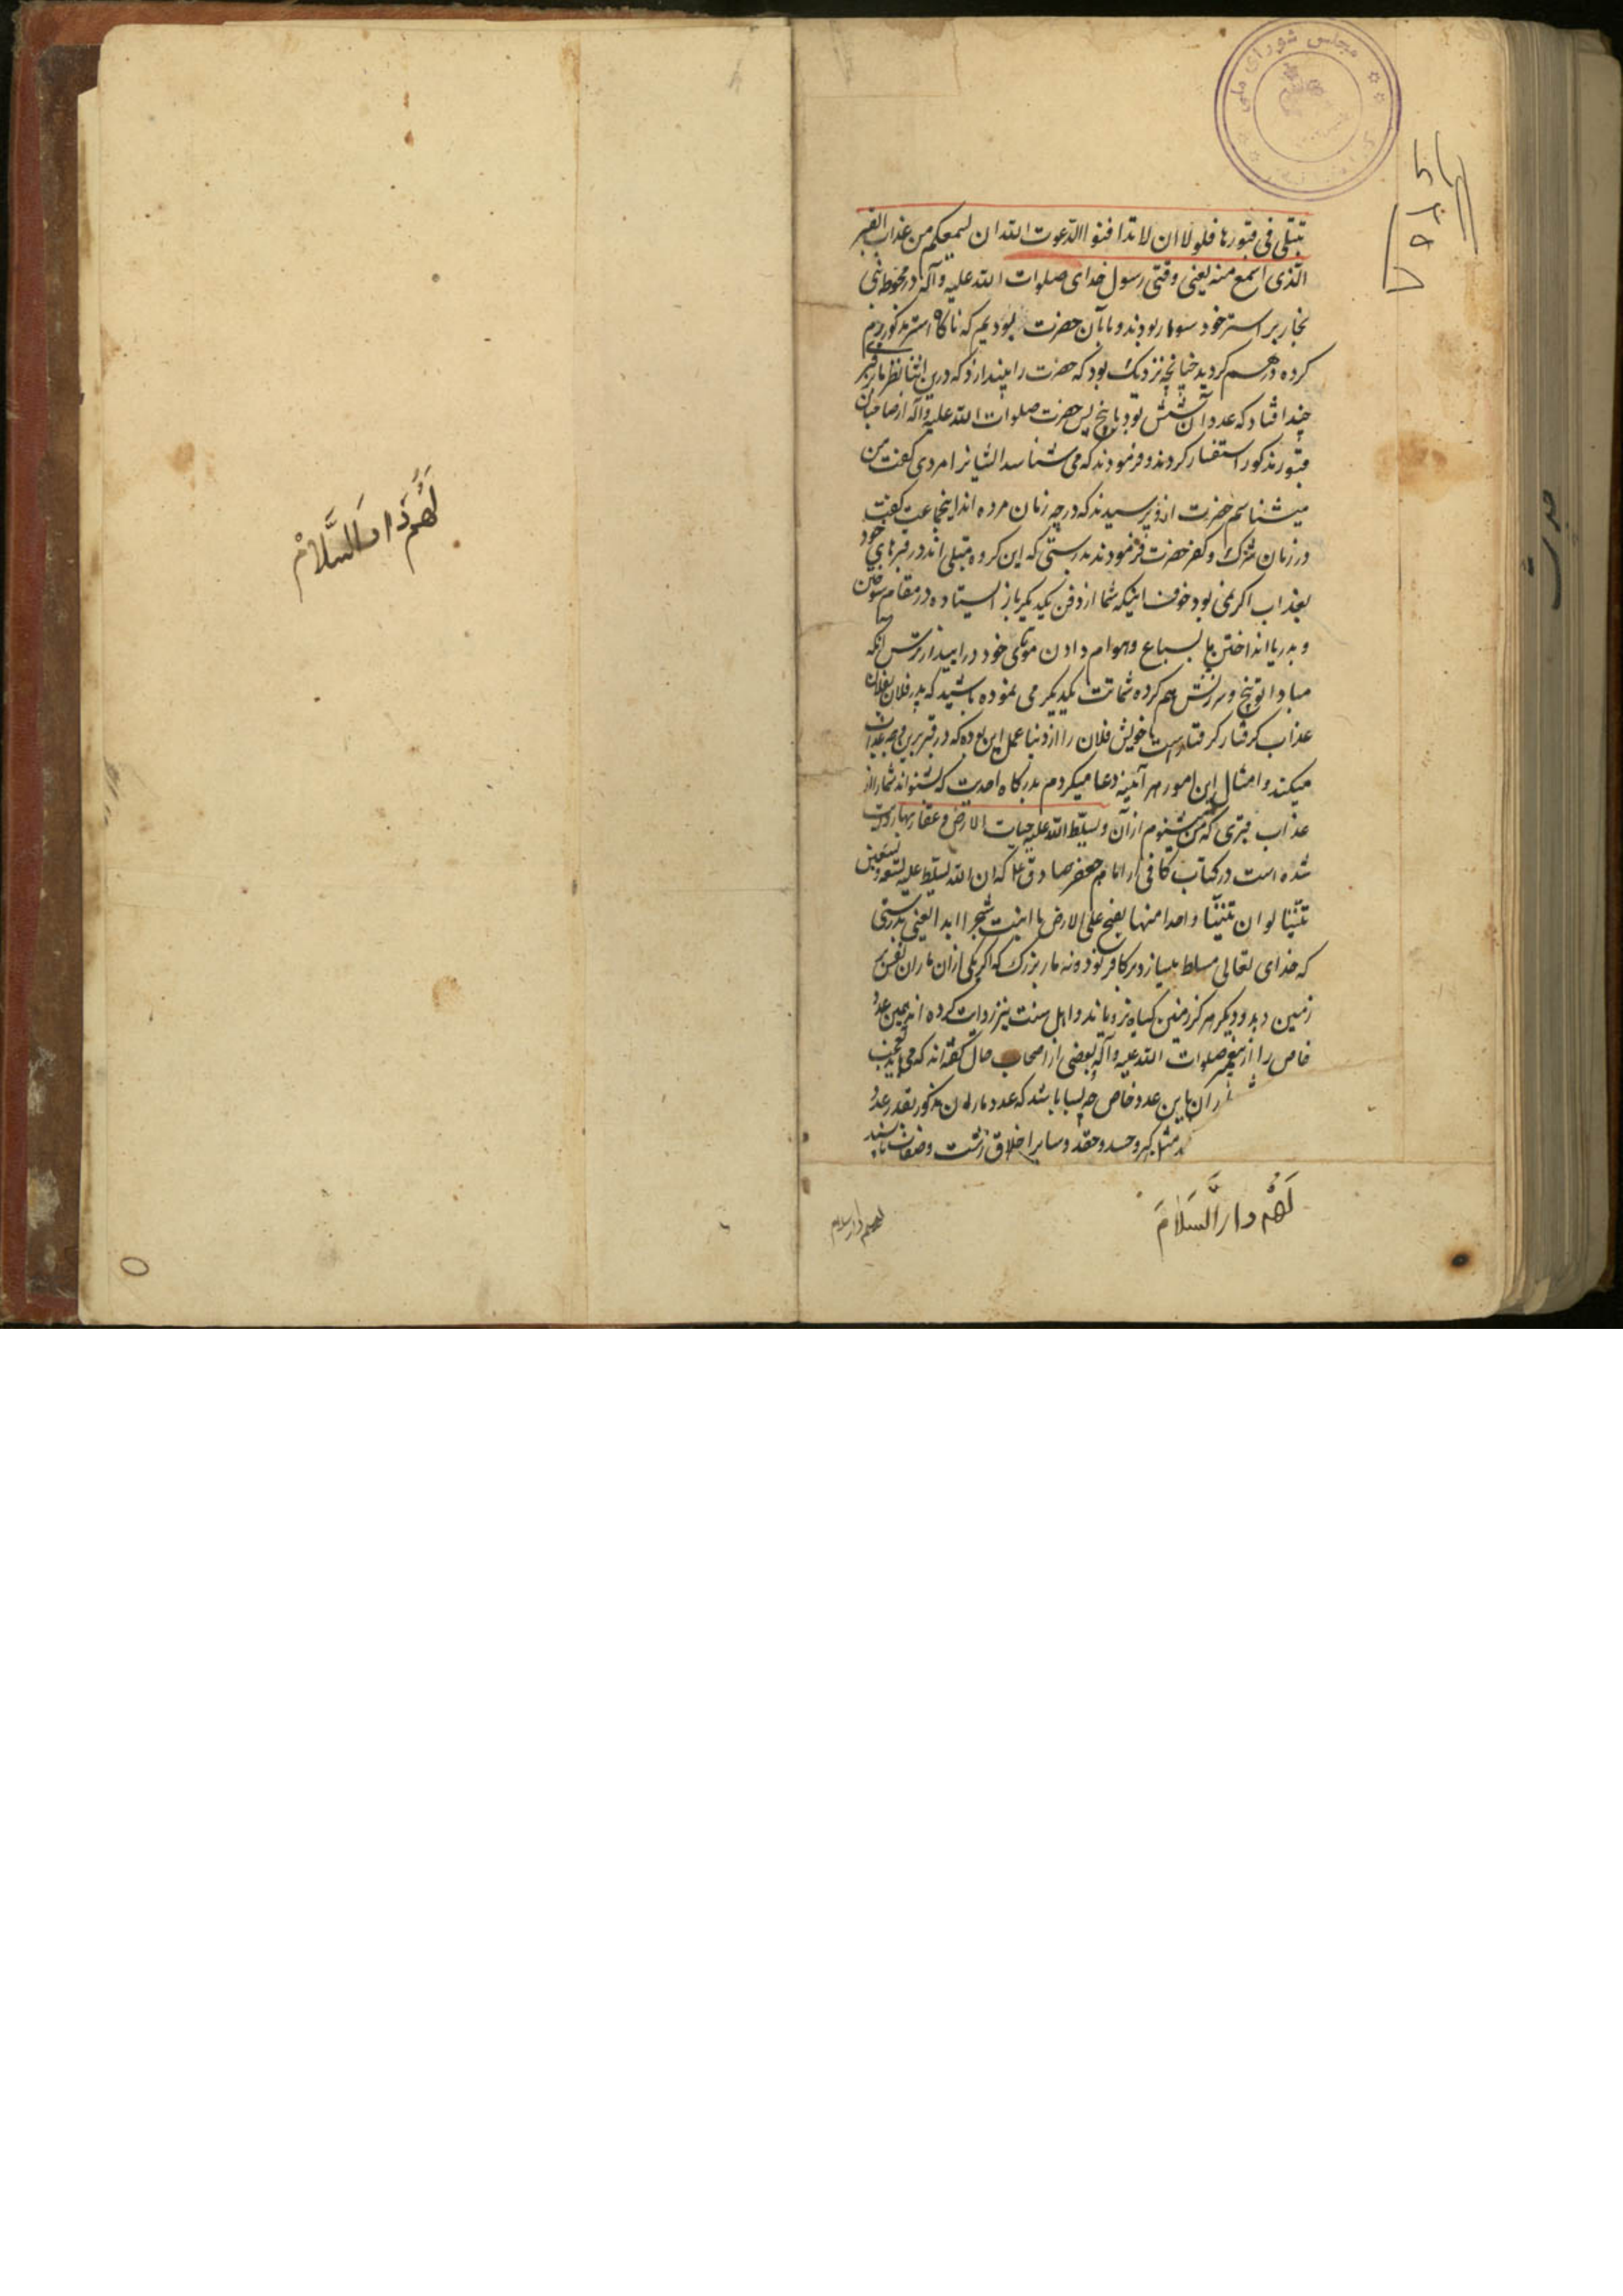 مجلس شورای ملی
تبتلی فی قبورها فلولا ان لا تدافنوا لدعوت الله ان یسمعکم من عذاب القبر
الذی اسمع منه یعنی وقتی رسول خدای صلوات الله علیه و آله در محوطه بنی
نجار بر استر خود سوار بودند و ما با آن حضرت بودیم که ناگاه استر مذکور رم
کرده درهم گردید چنانچه نزدیک بود که حضرت را بیندازد که درین اثنا نظر ما بر قبر
چند افتاد که عدد آن شش بود یا پنج پس حضرت صلوات الله علیه و آله از صاحبان
قبور مذکور استفسار کردند و فرمودند که می شناسد ایشانرا مردی گفت من
میشناسم حضرت ازو پرسیدند که در چه زمان مرده اند اینجماعت گفت
در زمان شرک و کفر حضرت فرمودند بدرستی که این گروه مبتلی اند در قبرهای خود
بعذاب اگر نمی بود خوف اینکه شما از دفن یکدیگر باز ایستاده در مقام سوختن
و بدریا انداختن یا بسباع و هوام دادن موتی خود درایید از ترس انکه
مبادا توبیخ و سرزنش هم کرده شماتت یکدیگر می نموده باشید که پدر فلان بفلان
عذاب گرفتار گرفتارست یا خویش فلان را از دنیا عمل این بوده که در قبر برین وجه عذابش
میکنند و امثال این امور هر آینه دعا میکردم بدرگاه احدیت که بشنواند شما را از
عذاب قبری که من میشنوم از آن و یسلط الله علیه حیات الارض و عقاربها روایت
شده است در کتاب کافی از امام جعفر صادق ع که ان الله یسلط علیه تسعة و تسعین
تنینا لو ان تنینا واحدا منها نفخ علی الارض ما انبتت شجرا ابدا یعنی بدرستی
که خدای تعالی مسلط میسازد بر کافر نود و نه مار بزرگ که اگر یکی ازان ماران نفس بر
زمین دمد دیگر هرگز زمین گیاه نرویاند و اهل سنت نیز روایت کرده اند همین عدد
خاص را از پیغمبر صلوات الله علیه و آله بعضی از اصحاب حال گفته اند که می باید تعجب
ان باین عدد خاص چه بسا باشد که عدد ماران مذکور بقدر عدد
مثل کبر و حسد و حقد و سایر اخلاق زشت و صفات ناپسند
لَهُم دار السَّلامَ
لهم دار سلام
حدیث
لَهُم دَار السَّلَامْ